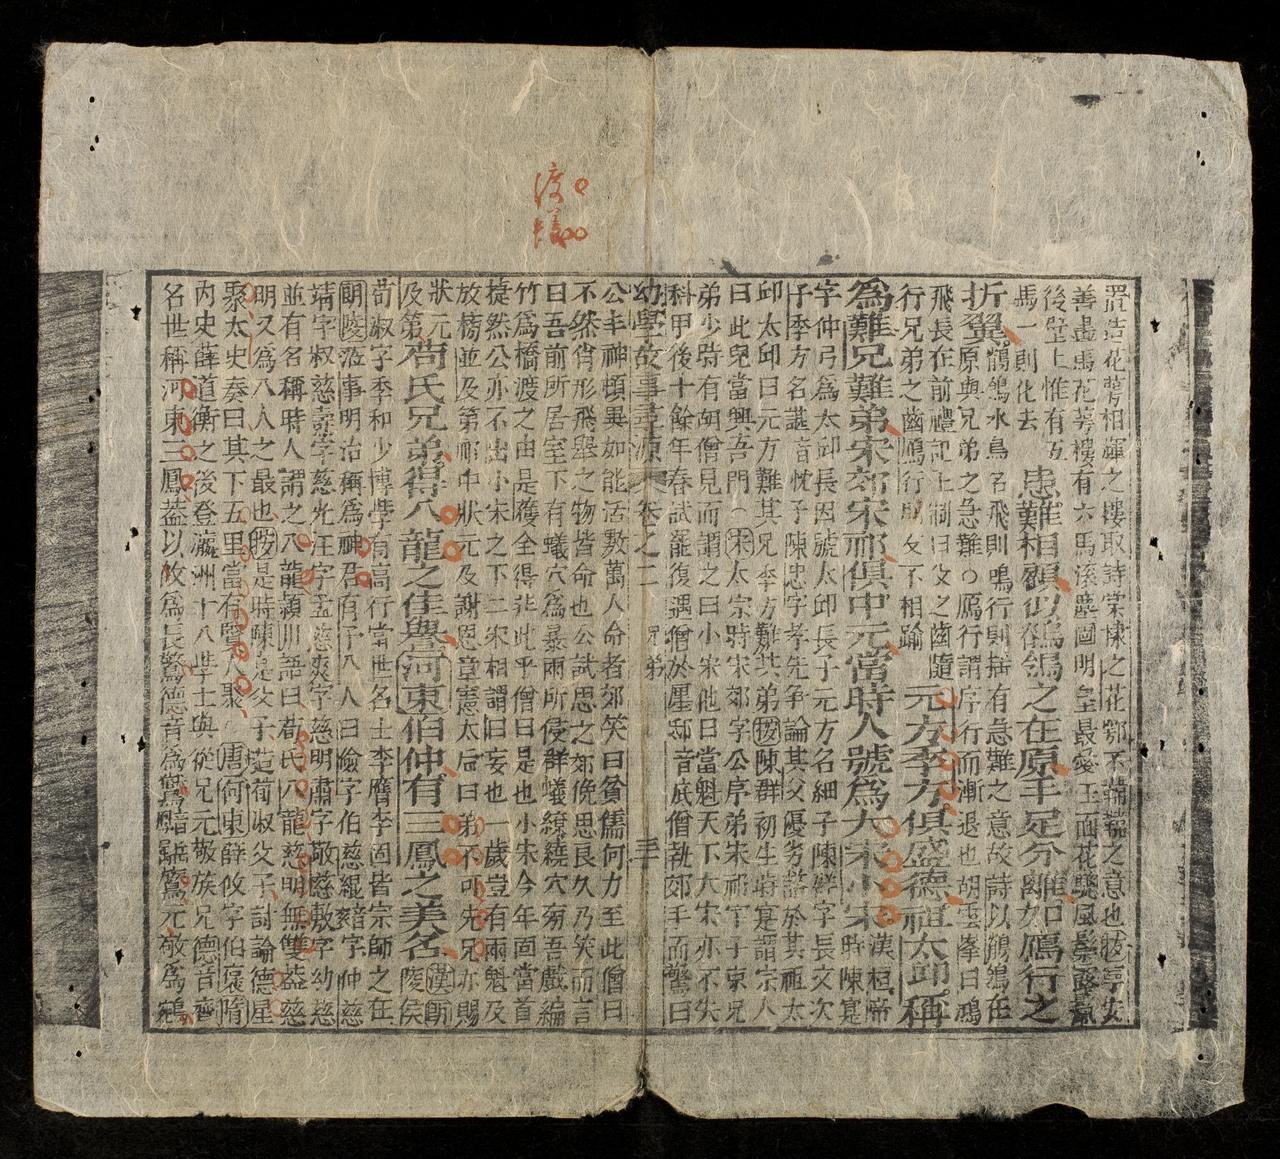 置造花萼相輝之樓取詩棠棣之花鄂不韡韡之意也敗亭安
善畫馬花萼樓有六馬滾塵圖明皇最愛玉面花驄風鬃霧鬣
後壁上惟有五
馬一則化去
患難相顧似鶺鴒之在原手足分離如鴈行之
折翼
鶺鴒水鳥名飛則鳴行則搖有急難之意故詩以鶺鴒在
原與兄弟之急難○鴈行謂序行而漸退也胡雲峯曰鴻
飛長在前禮記王制曰父之齒隨
行兄弟之齒鴈行朋友不相踰
元方季方俱盛德祖太邱稱
為難兄難弟宋郊宋祁俱中元當時人號為大宋小宋
漢桓帝
時陳寔
字仲弓為太邱長因號太邱長子元方名細子陳鮮字長文次
子季方名諶音忱子陳忠字孝先爭論其父優劣諮於其祖太
邱太邱曰元方難其兄季方難其弟後陳群初生時寔謂宗人
曰此兒當興吾門○宋太宗時宋郊字公序弟宋祁字子京兄
弟少時有胡僧見而謂之曰小宋他日當魁天下大宋亦不失
科甲後十餘年春試罷復遇僧於廛邸音底僧執郊手而驚曰
幼學故事尋源 卷之二 兄弟 三
公丰神頓異如能活數萬人命者郊笑曰貧儒何力至此僧曰
不然肖形飛舉之物皆命也公試思之郊俛思良久乃笑而言
曰吾前所居室下有蟻穴為暴雨所侵群蟻繚繞穴旁吾戲編
竹為橋渡之由是獲全得非此乎僧曰是也小宋今年面當首
捷然公亦不出小宋之下二宋相謂曰妄也一歲豈有兩魁及
放榜並及第祁中狀元及謝恩章憲太后曰弟不可先兄亦賜
狀元
及第
荀氏兄弟得八龍之佳譽河東伯仲有三鳳之美名
漢朗
陵侯
荀淑字季和少博學有高行當世名士李膺李固皆宗師之在
朗陵蒞事明治稱為神君有子八人曰儉字伯慈緄字仲慈
靖字叔慈燾字慈光汪字孟慈爽字慈明肅字敬慈敷字幼慈
並有名稱時人謂之八龍潁川語曰荀氏八龍慈明無雙蓋慈
明又為八人之最也時是時陳寔父子造荀淑父子討論德星
聚太史奏曰其下五里當有賢人聚 唐河東薛收字伯褒隋
內史薛道衡之後登瀛洲十八學士與從兄元敬族兄德音齊
名世稱河東三鳳蓋以收為長鶵德音為鸑鷟元敬為鵷
渡
蟻